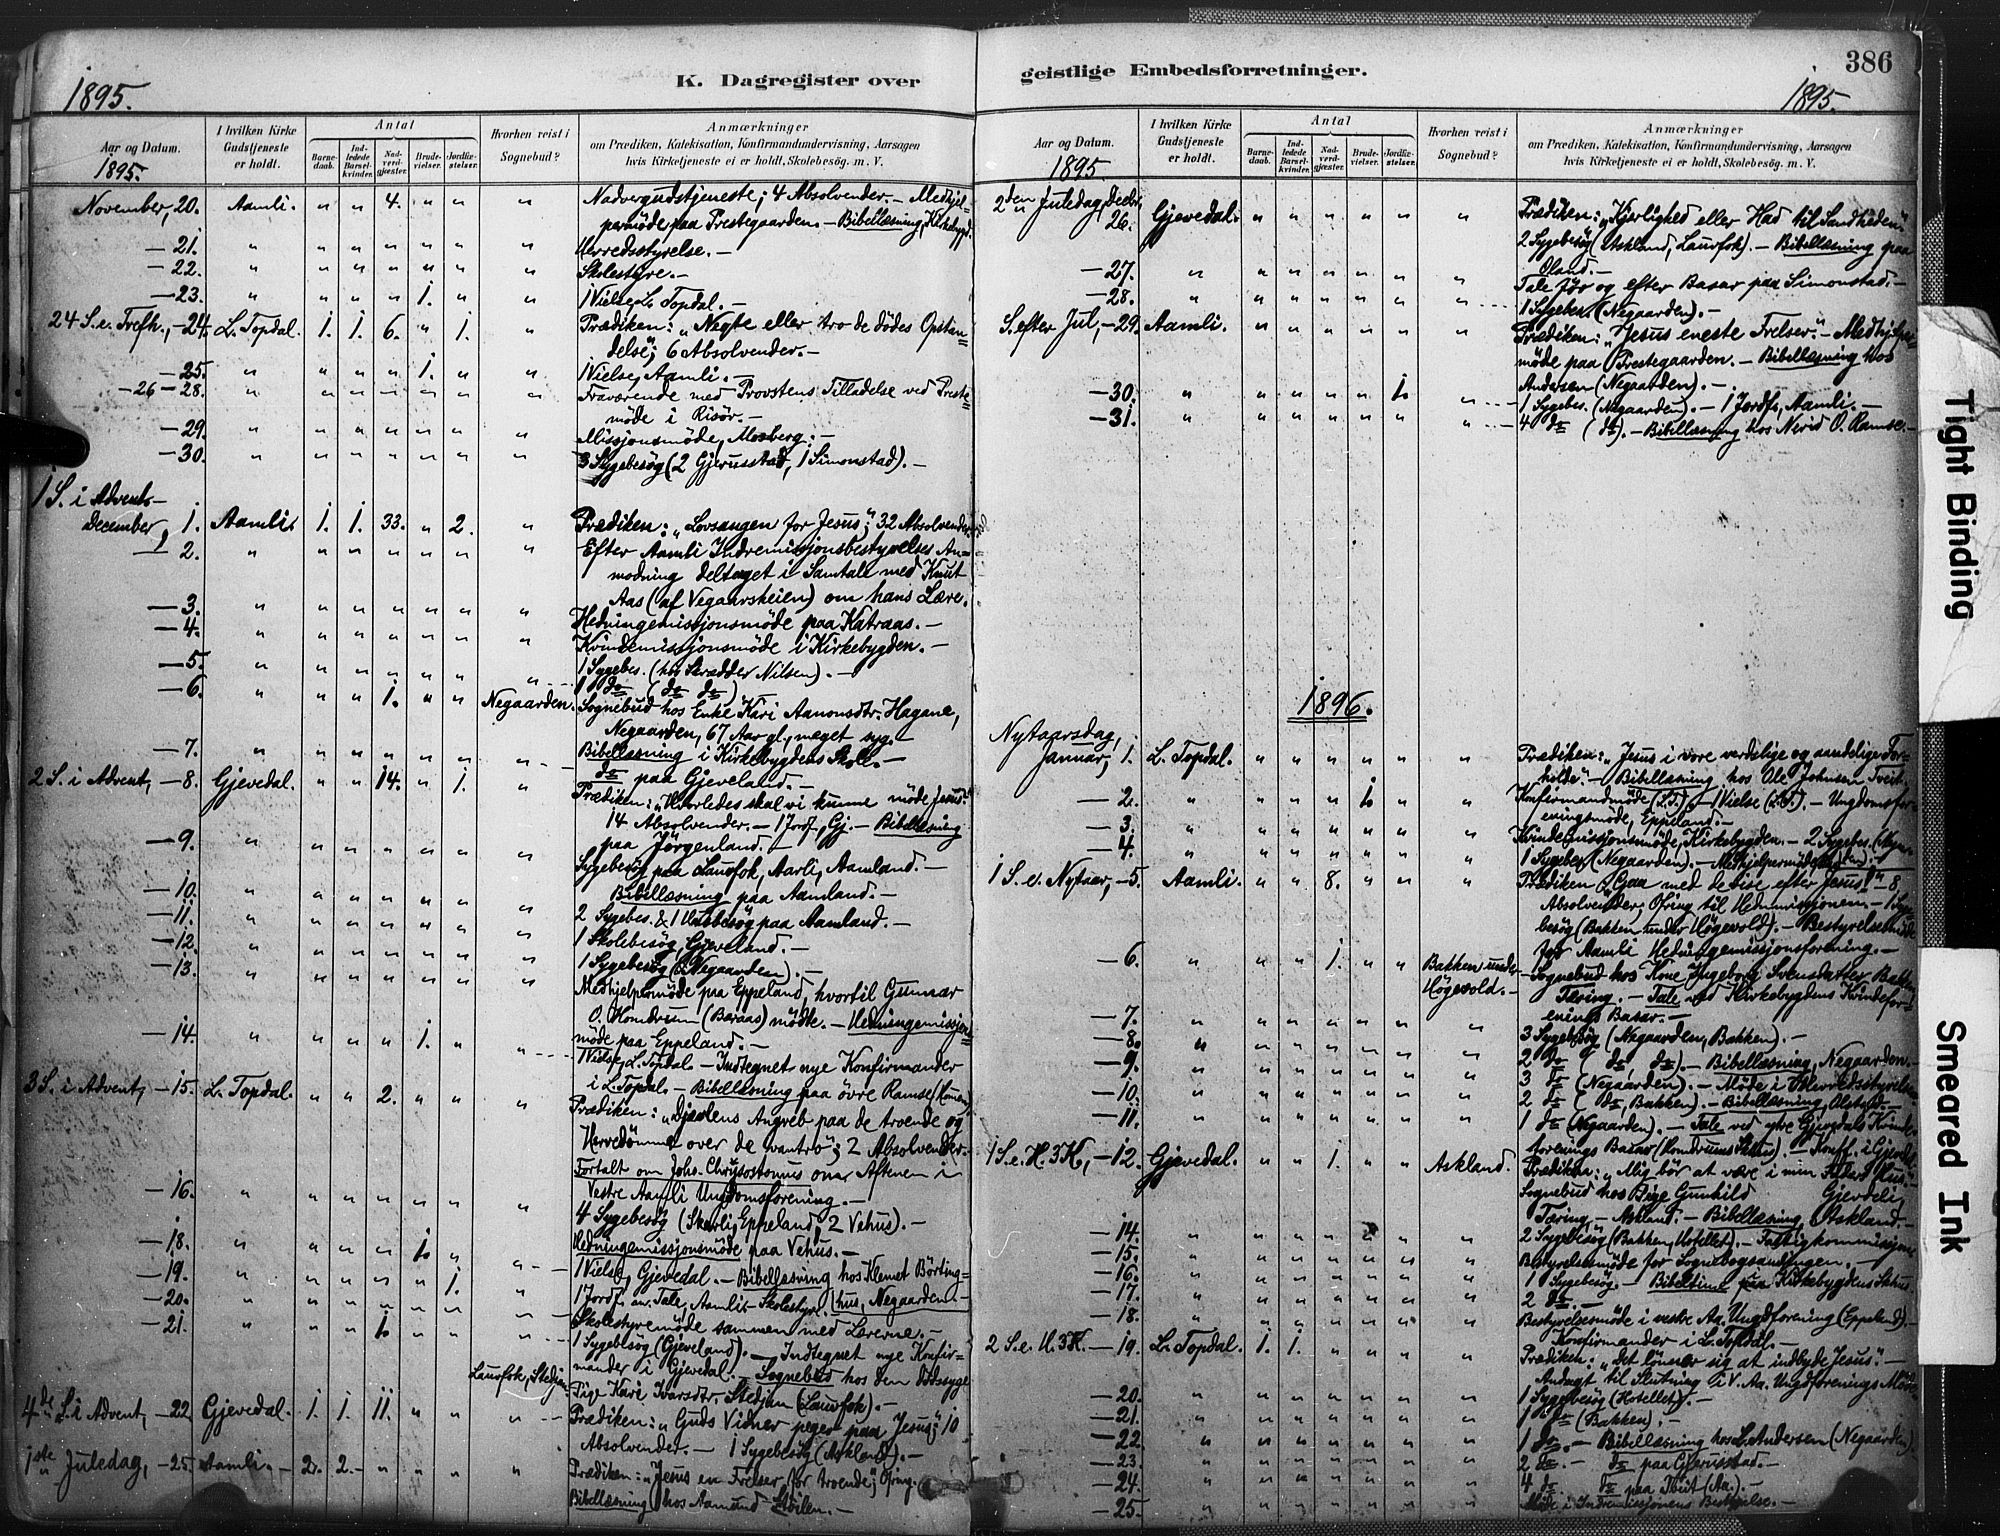 386
K. Dagregister over geistlige Embedsforretninger.
1895. 1895.
Aar og Datum. 1895.
I hvilken Kirke Gudstjeneste er holdt.
Antal
Barnedaab. Indledede Barselkvinder. Nadverdgjæster. Brudevielser. Jordfæstelser.
Hvorhen reist i Sognebud?
Anmærkninger
om Prædiken, Katekisation, Konfirmandundervisning, Aarsagen
hvis Kirketjeneste ei er holdt, Skolebesøg. m. V.
November, 20. Aamli. " " 4. " " " Nadvergudstjeneste; 4 Absolvender. — Medhjel-
permöde paa Prestegaarden. — Bibellæsning, Kirkebygd.
— 21. " " " " " " " Herredsstyrelse. —
— 22. " " " " " " " Skolestyre. —
— 23. " " " " 1. " " 1 Vielse, L. Topdal. —
24 S. e. Trefh., — 24. L. Topdal. 1. 1. 6. " 1. " Prædiken: „Negte eller tro de dödes Opstan-
delse"; 6 Absolvender. —
— 25. " " " " 1. " " 1 Vielse, Aamli. —
— 26 — 28. Fraværende med Provstens Tilladelse ved Preste-
möde i Risör. —
— 29. " " " " " " " Missjonsmöde, Mosberg. —
— 30. " " " " " " " 3 Sygebesøg (2 Gjerusstad, 1 Simonstad). —
1 S. i Advent —
December, 1. Aamli. 1. 1. 33. " 2. " Prædiken: „Lovsangen for Jesus"; 32 Absolvender.
— 2. " " " " " " " Efter Aamli Indremissjonsbestyrelses An-
modning deltaget i Samtale med Knut
Aas (af Vegaarsheien) om hans Lære.
— 3. " " " " " " " Hedningemissjonsmöde paa Katraas. —
— 4. " " " " " " " Kvindemissjonsmöde i Kirkebygden. —
— 5. " " " " " " " 1 Sygebes. (hos Skrædder Nilsen). —
1 do (do do)
— 6. " " " 1. " " Negaarden. Sognebud hos Enke Kari Aanonsdtr. Hagane,
Negaarden, 67 Aar gl., meget syg. —
— 7. " " " " " " " Bibellæsning i Kirkebygdens Skole. —
do paa Gjeveland. —
2 S. i Advent, — 8. Gjevedal. " " 14. " 1. " Prædiken: „Hvorledes skal vi kunne möde Jesus?"
14 Absolvender. — 1 Jordf., Gj. — Bibellæsning
paa Jörgenland. —
— 9. " " " " " " " Sygebesøg paa Laurfok, Aarli, Aamland. —
Bibellæsning paa Aamland. —
— 10. " " " " " " " 2 Sygebes. & 1 Husbesøg paa Aamland. —
— 11. " " " " " " " 1 Skolebesøg, Gjeveland. —
— 12. " " " " " " " 1 Sygebesøg (Negaarden). —
— 13. " " " " " " " Medhjelpermöde paa Eppeland, hvortil Gunnar
O. Homdrum (Baraas) mödte. — Hedningemissjons-
möde paa Eppeland. —
— 14. " " " " 1. " " 1 Vielse, L. Topdal. — Indtegnet nye Konfirmander
i L. Topdal. — Bibellæsning paa övre Ramse
3 S. i Advent, — 15. L. Topdal. " " 2. " " " Prædiken: „Djævelens Angreb paa de troende og
Herredömme over de vantro"; 2 Absolvender.
Fortalt om Joh. Chrysostomus om Aftenen i
Vestre Aamli Ungdomsforening. —
— 16. " " " " " " " 4 Sygebesøg (Skarli, Eppeland, 2 Vehus). —
Hedningemissjonsmöde paa Vehus. —
— 18. " " " " 1. " " 1 Vielse, Gjevedal. — Bibellæsning hos Klemet Börting-
hus, Negaarden. —
— 19. " " " " " 1. " 1 Jordf. m. Tale, Aamli. — Skolestyre.
— 20. " " " " " " " Skolestyremöde sammen med Lærerne. —
— 21. " " " 1. " " Laurfok, Stedjan. 1 Sygebesøg (Gjeveland). — Indtegnet nye Konfir-
mander i Gjevedal. — Sognebud hos den dödssyge
Pige Kari Ivarsdtr. Stedjan (Laurfok). —
4de S. i Advent, — 22 Gjevedal. 1. 1. 11. " " " Prædiken: „Guds Vidner peger paa Jesus"; 10
Absolvender. — 1 Sygebesøg (Askland). —
1ste Juledag, — 25. Aamli. — 2. 2. — " " " " Prædiken: „Jesus en Frelser for troende"; Ofring.
Bibellæsning hos Aamund Stöilen. —
Aar og Datum. 1895
I hvilken Kirke Gudstjeneste er holdt.
Antal
Barnedaab. Indledede Barselkvinder. Nadverdgjæster. Brudevielser. Jordfæstelser.
Hvorhen reist i Sognebud?
Anmærkninger
om Prædiken, Katekisation, Konfirmandundervisning, Aarsagen
hvis Kirketjeneste ei er holdt, Skolebesøg. m. V.
2den Juledag, Decbr. 26. Gjevedal. " " " " " " Prædiken: „Kjærlighed eller Had til Sandheden."
2 Sygebesög (Askland, Laurfok). — Bibellæsning paa
Öland. —
— 27. " " " " " " " Tale før og efter Basar paa Simonstad. —
— 28. " " " " " " " 1 Sygebes. (Negaarden). —
S. efter Jul, — 29. Aamli. " " " " " " Prædiken: „Jesus eneste Frelser." — Medhjelper-
möde paa Prestegaarden. — Bibellæsning hos
Andersen (Negaarden). —
— 30. " " " " " 1. " 1 Sygebes. (Negaarden). — 1 Jordf., Aamli. —
— 31. " " " " " " " 4 do (do). — Bibellæsning hos Nerid O. Ramse. —
1896.
Nytaarsdag,
Januar, 1. L. Topdal. " " " " " " Prædiken: „Jesus i vore verdslige og aandelige For-
holde". — Bibellæsning hos Ole Johnsen Tveit. —
— 2. " " " " 1. " " Konfirmandmöde (L.T.). — 1 Vielse (L.T.). — Ungdomsfor-
eningsmöde, Eppeland. —
— 3. " " " " " " " Kvindemissjonsmöde, Kirkebygden. — 2 Sygebes.
— 4. " " " " " " " 1 Sygebes. (Negaarden). — Medhjelpermöde
1 S. e. Nytaar, — 5. Aamli. " " 8. " " " Prædiken: „Gaa med de vise efter Jesus!" — 8
Absolvender; Ofring til Hedn.missjonen. — 1 Syge-
besög (Bakken under Högevold). — Bestyrelsesmöde
for Aamli Hedningemissjonsforening. —
— 6. " " " 1. " " Bakken under Högevold. — Sognebud hos Kone Ingeborg Svensdatter Bakken,
Tæring. — Tale ved Kirkebygdens Kvindefor-
enings Basar. —
— 7. " " " " " " " 3 Sygebesøg (Negaarden, Bakken). —
— 8. " " " " " " " 2 do (do, do). — Bibellæsning, Negaarden. —
— 9. " " " " " " " 3 do (Negaarden). — Möde i Herredsstyrelse
— 10. " " " " " " " 2 do (do, Bakken). — Bibellæsning, Alstad. —
— 11. " " " " " " " 1 do (Negaarden). — Tale ved ytre Gjevedals Kvinde-
forenings Basar (Homdrums Skhus). — Konf. i Gjeved.
1 S. e. H. 3 K., — 12. Gjevedal. " " 1. " " Askland. Prædiken: „Mig bör at være i min Faders Hus". —
Sognebud hos Pige Gunhild Gjevdeli,
Tæring, — Askland. — Bibellæsning, Askland. —
— 14. " " " " " " 2 Sygebesøg (Bakken, Hotellet). — Fattigkommissjon.
— 15. " " " " " " " Bestyrelsesmöde for Sognebogsamlingen. —
— 16. " " " " " " " 1 Sygebesøg. — Bibeltime paa Kirkebygdens Skhus.
— 17. " " " " " " " 2 do. —
— 18. " " " " " " " Bestyrelsesmöde i vestre Aa. Ungdforening (Eppeland). —
Konfirmander i L. Topdal. —
2 S. e. H. 3 K. — 19. L. Topdal. 1. 1. " " " " Prædiken: „Det lönner sig at indbyde Jesus". —
Andagt til Slutning i V. Aa. Ungdforenings Möde
— 20. " " " " " " " 1 Sygebesøg (Hotellet). —
— 21. " " " " " " " 1 do (Bakken). —
— 22. " " " " " " " 1 do. — Bibellæsning hos L. Andersen (Negaarden)
— 23. " " " " " " " 2 do. — do paa Gjerusstad. —
— 24. " " " " " " " 4 do. do paa Tveit (Aa.). —
— 25. " " " " " " " Möde i Indremissjonens Bestyrelse. —
Tight Binding
Smeared Ink